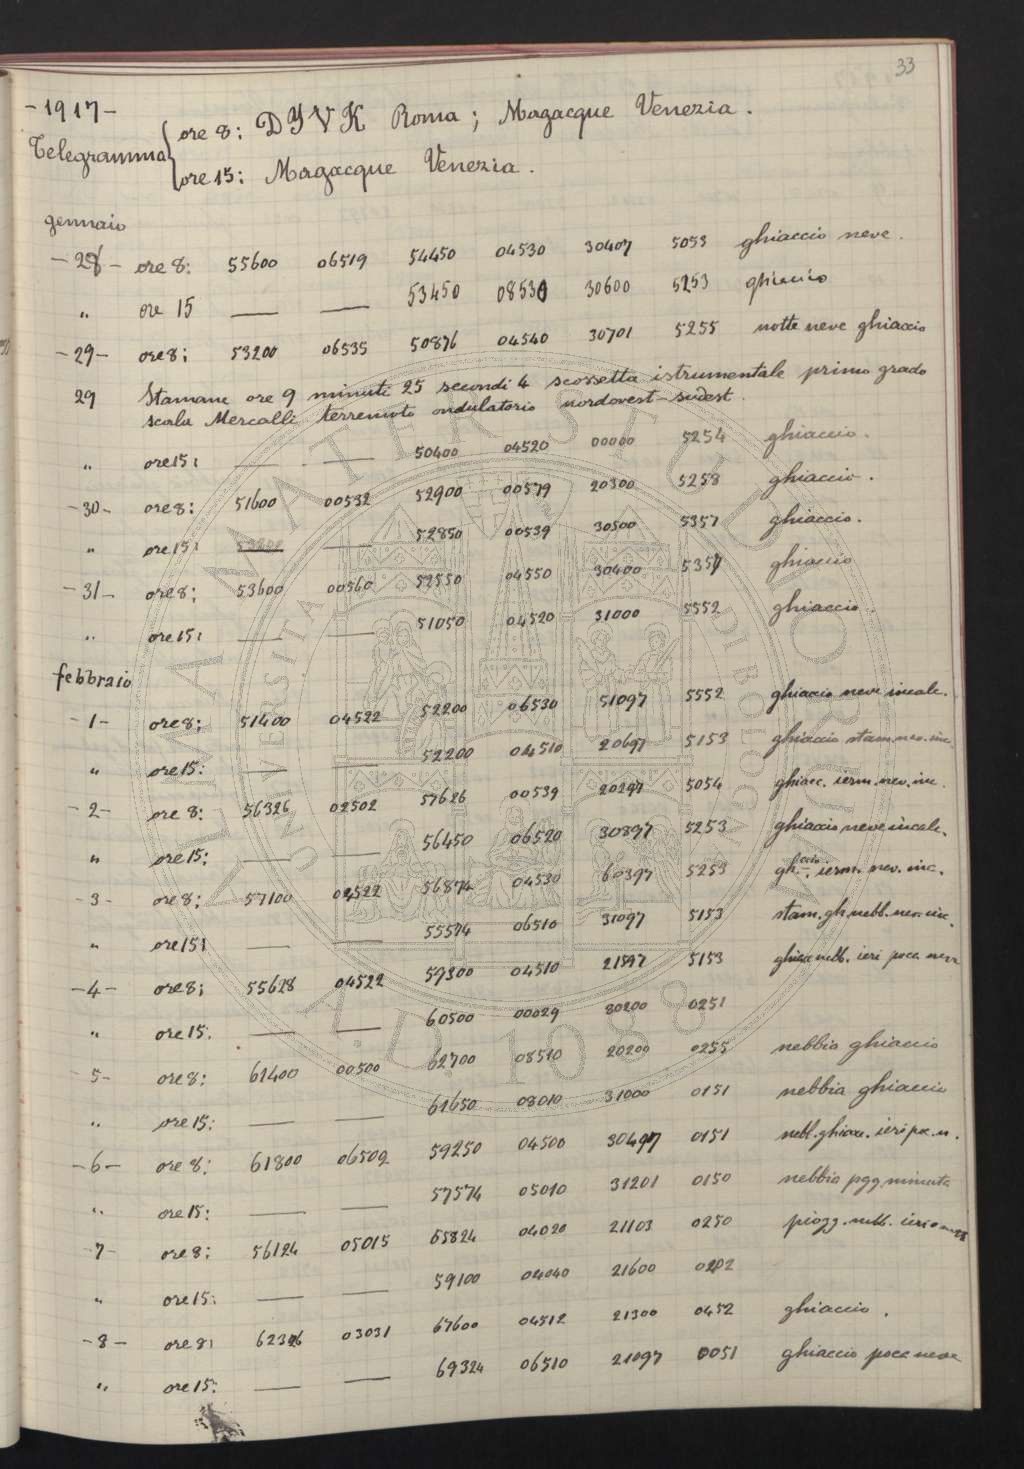 33
-1917-
Telegramma
ore 8: DYVK Roma; Magacque Venezia.
ore 15: Magacque Venezia.
gennaio
-28- ore 8: 55600 06519 54450 04530 30407 5053 ghiaccio neve.
" ore 15 — — 53450 08530 30600 5253 ghiaccio
-29- ore 8: 53200 06535 50876 04540 30701 5255 notte neve ghiaccio
29 Stamane ore 9 minuti 25 secondi 4 scossetta istrumentale primo grado
scala Mercalli terremoto ondulatorio nordovest-sudest.
" ore 15: — — 50400 04520 00000 5254 ghiaccio.
-30- ore 8: 51600 00532 52900 00579 20300 5258 ghiaccio.
" ore 15: — 52850 00539 30500 5357 ghiaccio.
-31- ore 8: 53600 00560 52550 04550 30400 5357 ghiaccio
" ore 15: — — 51050 04520 31000 5552 ghiaccio.
febbraio
-1- ore 8: 51400 04522 52200 06530 51097 5552 ghiaccio neve incalc.
" ore 15: — — 52200 04510 20697 5153 ghiaccio stam. nev. inc.
-2- ore 8: 56326 02502 57626 00539 20297 5054 ghiacc. ierm. nev. inc.
" ore 15: — — 56450 06520 30897 5253 ghiaccio neve incalc.
-3- ore 8: 57100 04522 56874 04530 60397 5253 ierm. nev. inc.
" ore 15: — — 55574 06510 31097 5153 stam. gh. nebb. nev. inc.
-4- ore 8: 55628 04522 59300 04510 21597 5153 nebb. ieri poca neve
" ore 15. — — 60500 00029 80200 0251
-5- ore 8: 61400 00500 62700 08510 20200 0255 nebbia ghiaccio
" ore 15: — — 61650 08010 31000 0151 nebbia ghiaccio
-6- ore 8: 61800 06502 59250 04500 30497 0151 nebb. ghiacc. ieri pc. n.
" ore 15: — — 57574 05010 31201 0150 nebbia pgg minuta
-7- ore 8: 56124 05015 65824 04020 21103 0250 piogg. nebb. ieri
" ore 15: — — 59100 04040 21600 0202
-8- ore 8: 62326 03031 67600 04512 21300 0452 ghiaccio.
" ore 15: — — 69324 06510 21097 0051 ghiaccio poca neve
ALMA MATER STUDIORUM
UNIVERSITÀ DI BOLOGNA
A.D. 1088